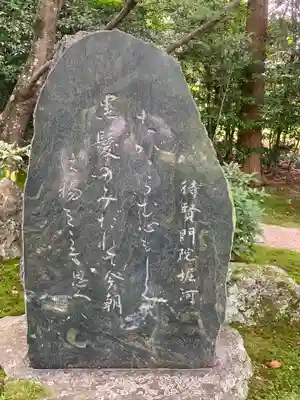 待賢門院堀河
なかゝらむ心もしらす
黒髪のみだれて今朝
は物をこそ思へ